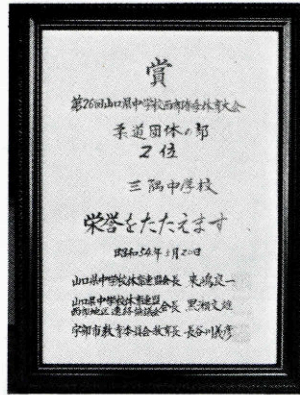 賞
第26回山口県中学校西部春季体育大会
柔道団体の部
2位
三隅中学校
栄誉をたたえます
昭和54年5月20日
山口県中学校体育連盟会長 東嶋良一
山口県中学校体育連盟
西部地区連絡協議会会長 黒瀬文雄
宇部市教育委員会教育長 長谷川義彦